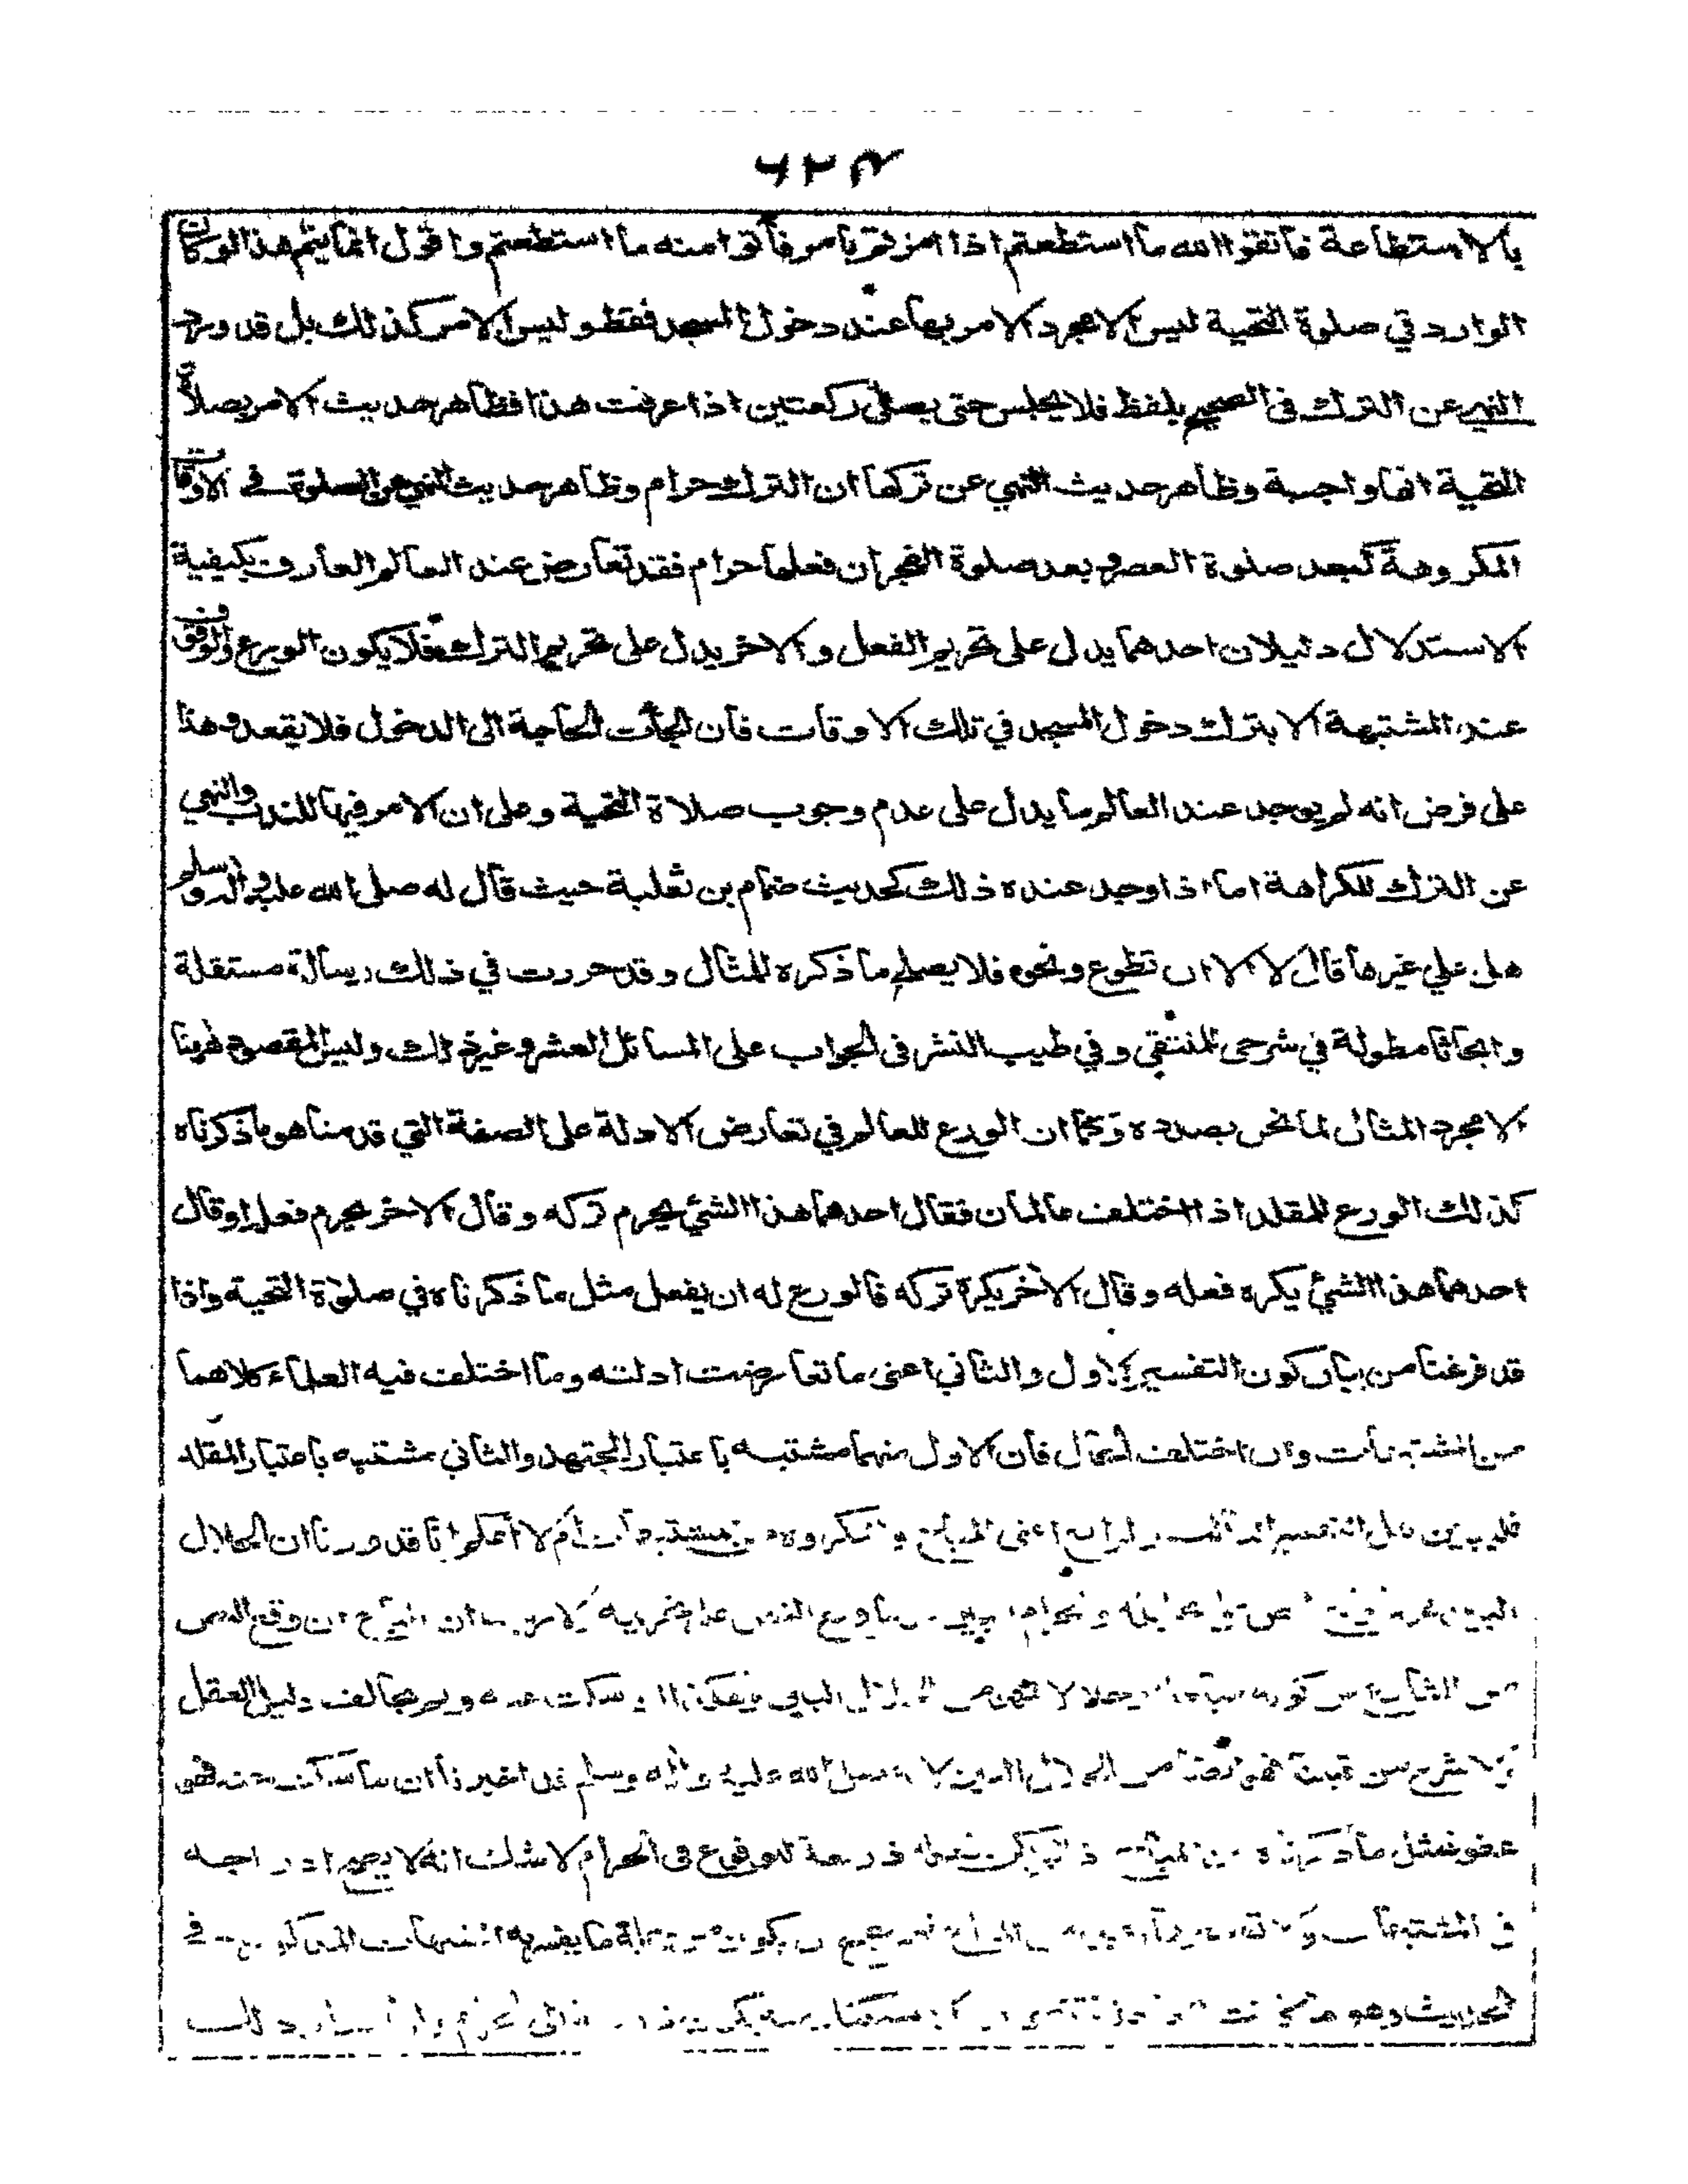 ۶۲۴
بالاستطاعة فاتقوا الله ما استطعتم اذا امرتم بامر فأتوا منه ما استطعتم واقول انما يتم هذا لو كان
الوارد في صلوة التحية ليس الا مجرد الامر بها عند دخول المسجد فقط وليس الامر كذلك بل قد ورد
النهي عن الترك فى الصحيح بلفظ فلا يجلس حتى يصلي ركعتين اذا عرفت هذا فظاهر حديث الامر بصلاة
التحية انها واجبة وظاهر حديث النهي عن تركها ان الترك حرام وظاهر حديث النهي عن الصلوة في الاوقات
المكروهة كبعد صلوة العصر وبعد صلوة الفجر ان فعلها حرام فقد تعارض عند العالم العارف بكيفية
الاستدلال دليلان احدهما يدل على تحريم الفعل والاخر يدل على تحريم الترك فلا يكون الورع والوقوف
عند المشتبهة الا بترك دخول المسجد في تلك الاوقات فان الجأت الحاجة الى الدخول فلا يقعد وهذا
على فرض انه لم يوجد عند العالم ما يدل على عدم وجوب صلاة التحية وعلى ان الامر فيها للندب والنهي
عن الترك للكراهة اما اذا وجد عنده ذلك كحديث ضمام بن ثعلبة حيث قال له صلى الله عليه واله وسلم
هل علي غيرها قال لا الا ان تطوع ونحوه فلا يصلح ما ذكره للمثال وقد حررت في ذلك رسالة مستقلة
وابحاثا مطولة في شرحى للمنتقى وفي طيب النشر فى الجواب على المسائل العشر وغير ذلك وليس المقصود ههنا
الا مجرد المثال لما نحن بصدده وكما ان الورع للعالم في تعارض الادلة على الصفة التي قدمنا هو ما ذكرناه
كذلك الورع للمقلد اذا اختلف عالمان فقال احدهما هذا الشيء يحرم تركه وقال الاخر يحرم فعله او قال
احدهما هذا الشيء يكره فعله وقال الاخر يكره تركه فالورع له ان يفعل مثل ما ذكرناه في صلوة التحية واذا
قد فرغنا من بيان كون التفسير الاول والثاني اعنى ما تعارضت ادلته وما اختلف فيه العلماء كلاهما
من المشتبهات وان اختلف الحال فان الاول منهما مشتبه باعتبار المجتهد والثاني مشتبه باعتبار المقلد
فليبين هل التفسير الثالث والرابع اعنى المباح والمكروه من المشتبهات ام لا اعلم انا قد قررنا ان الحلال
البين وقع النص على تحريمه ان وقع النص
من الشارع من كونه مباحا سكت عنه ولم يخالف دليل العقل
ولا شرع من قبلنا فهو ايضا من الحلال البين لانه صلى الله عليه واله وسلم قد اخبرنا ان ما سكت عنه فهو
عفو فمثل ما ذكرناه من المباح اذا لم يكن فعله ذريعة للوقوع فى الحرام لا شك انه لا يصح ادراجه
في المشتبهات يكون ما يفسر به الشبهات المذكورة في
الحديث وهو